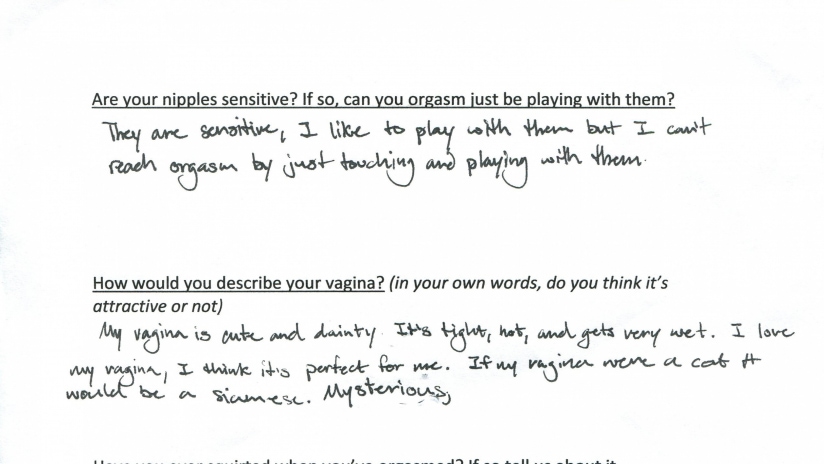 Are your nipples sensitive? If so, can you orgasm just be playing with them?
They are sensitive, I like to play with them but I can't
reach orgasm by just touching and playing with them.
How would you describe your vagina? (in your own words, do you think it's
attractive or not)
My vagina is cute and dainty. It's tight, hot, and gets very wet. I love
my vagina, I think it's perfect for me. If my vagina were a cat it
would be a siamese. Mysterious,
Have you ever squirted when you've orgasmed? If so tell us about it